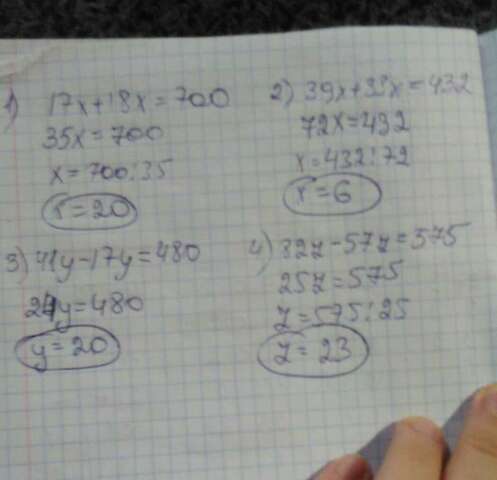 1) 17x+18x=700
35x=700
x=700:35
x=20
2) 39x+33x=432
72x=432
x=432:72
x=6
3) 41y-17y=480
24y=480
y=20
4) 82z-57z=575
25z=575
z=575:25
z=23